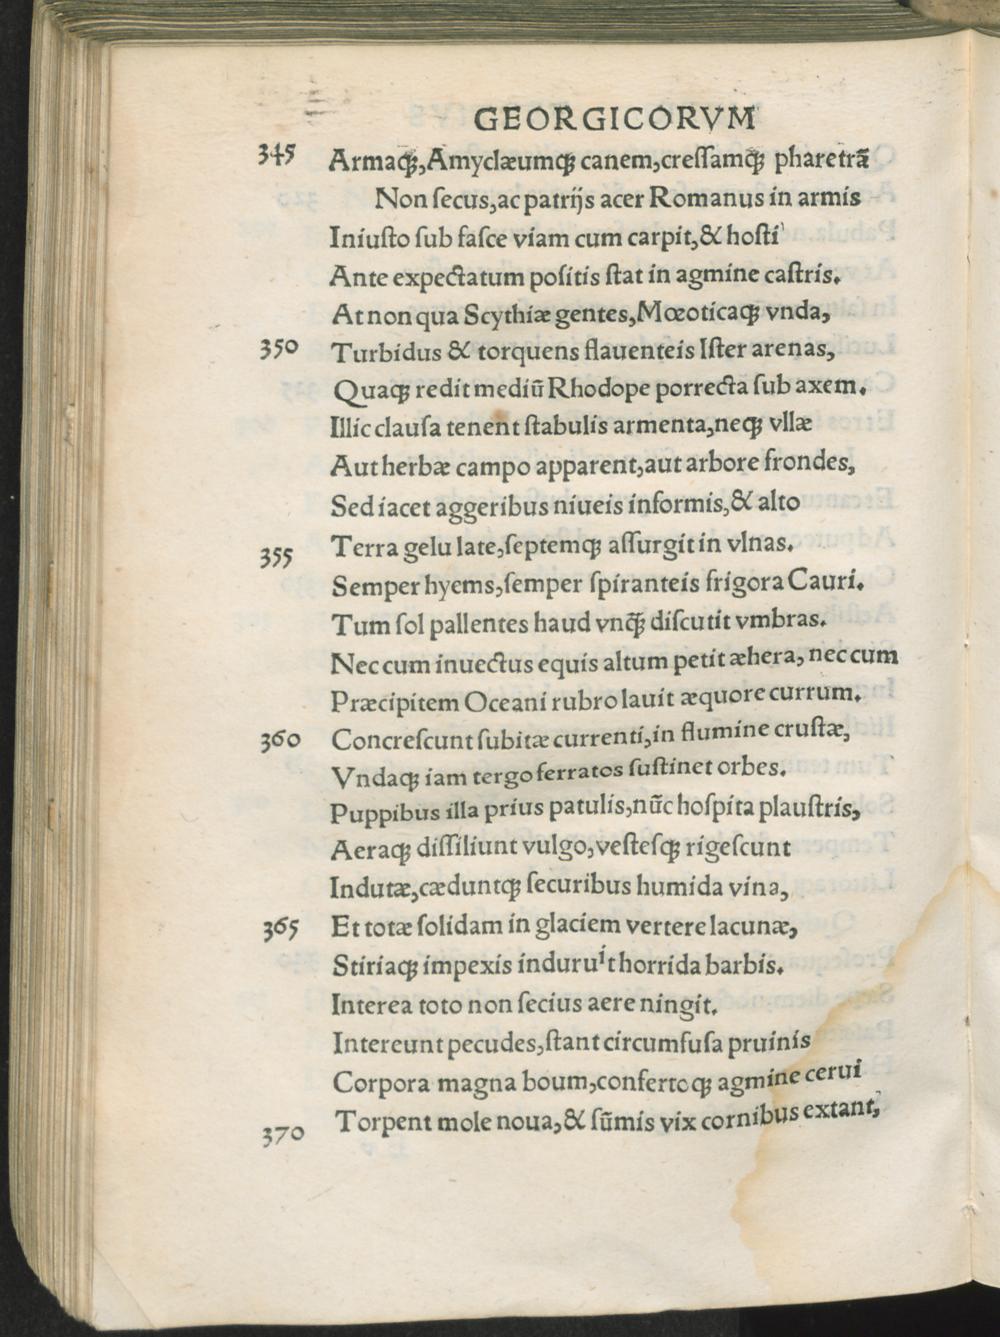 GEORGICORVM
345 Armaq;, Amyclæumq; canem, creſſamq; pharetrā
Non ſecus, ac patrijs acer Romanus in armis
Iniuſto ſub faſce viam cum carpit, & hoſti
Ante expectatum poſitis ſtat in agmine caſtris.
At non qua Scythiæ gentes, Mœoticaq; vnda,
350 Turbidus & torquens flauenteis Iſter arenas,
Quaq; redit mediū Rhodope porrecta ſub axem.
Illic clauſa tenent ſtabulis armenta, neq; vllæ
Aut herbæ campo apparent, aut arbore frondes,
Sed iacet aggeribus niueis informis, & alto
355 Terra gelu late, ſeptemq; aſſurgit in vlnas.
Semper hyems, ſemper ſpiranteis frigora Cauri.
Tum ſol pallentes haud vnq̄; diſcutit vmbras.
Nec cum inuectus equis altum petit æhera, nec cum
Præcipitem Oceani rubro lauit æquore currum.
360 Concreſcunt ſubitæ currenti, in flumine cruſtæ,
Vndaq; iam tergo ferratos ſuſtinet orbes.
Puppibus illa prius patulis, nūc hoſpita plauſtris,
Aeraq; diſſiliunt vulgo, veſteſq; rigeſcunt
Indutæ, cæduntq; ſecuribus humida vina,
365 Et totæ ſolidam in glaciem vertere lacunæ,
Stiriaq; impexis induruit horrida barbis.
Interea toto non ſecius aere ningit.
Intereunt pecudes, ſtant circumfuſa pruinis
Corpora magna boum, confertoq; agmine cerui
370 Torpent mole noua, & ſūmis vix cornibus extant,